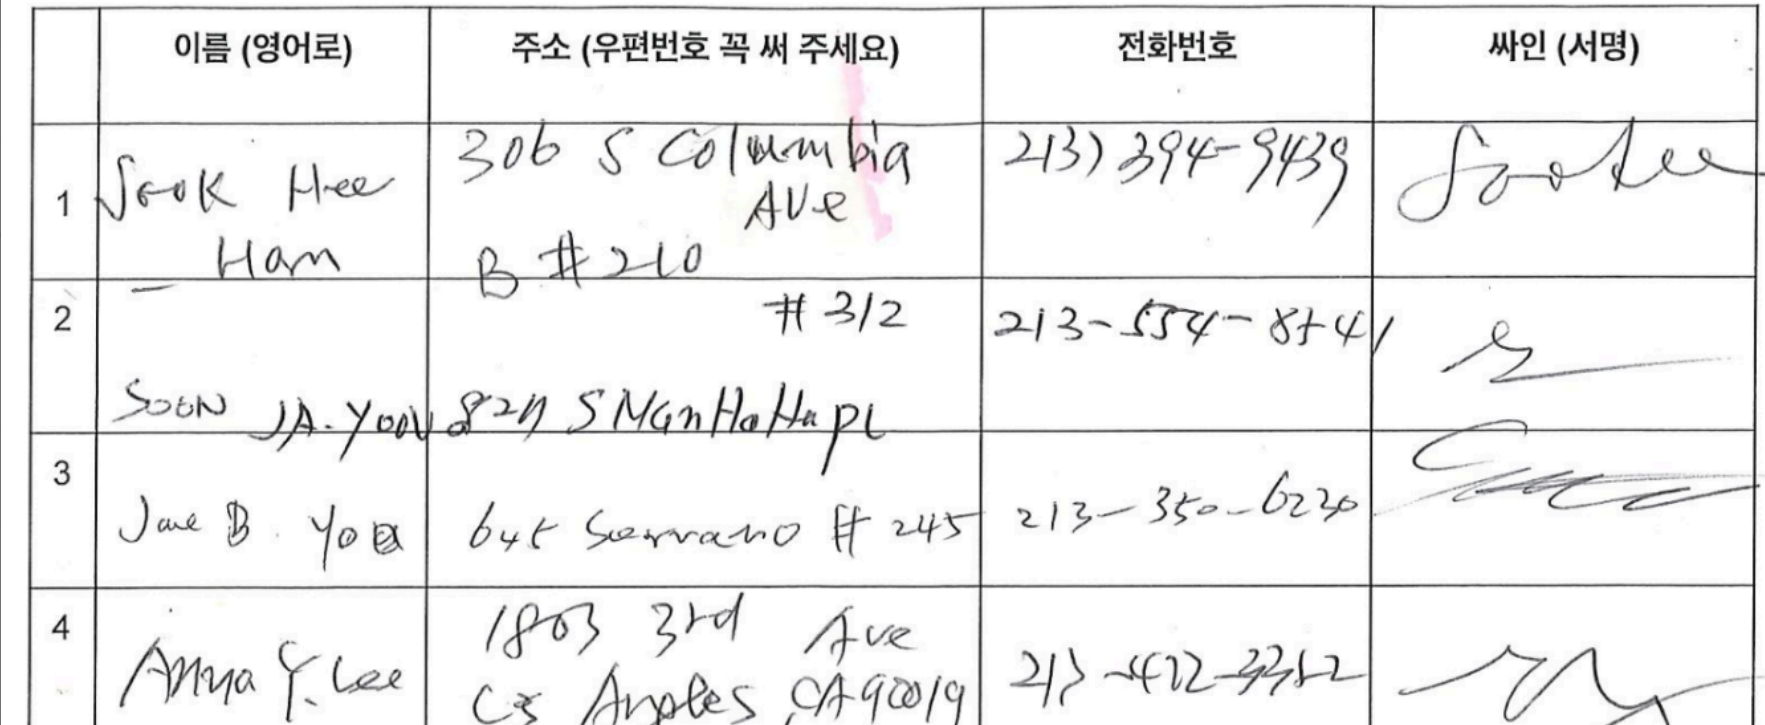 이름 (영어로) 주소 (우편번호 꼭 써 주세요) 전화번호 싸인 (서명)
1 Sook Hee Ham 306 S Columbia Ave B #210 213) 394-9439
2 SOON JA. YOON #312 S Manhattan PL 213-554-8541
3 B. Yoo 645 Serrano # 245 213-350-6230
4 Y. Lee 1803 3rd Ave Los Angeles CA 90019